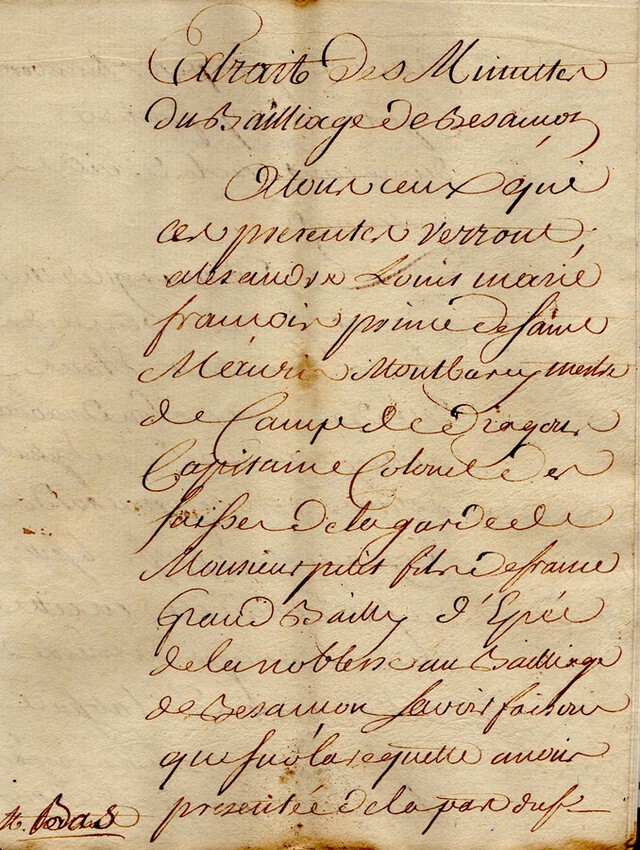 Extrait des Minuttes
du Bailliage de Besancon
A tous ceux qui
ces presentes verront,
alexandre Louis marie
francois prince de saint
Mauris Montbarey mestre
de Camp de Dragons
Capitaine Colonel des
suisses de la garde de
Monsieur petit fils de france
Grand Bailly d'Epée
de la noblesse au Bailliage
de Besancon savoir faisons
que sur la requette a nous
presentée de la part du sr
Bas